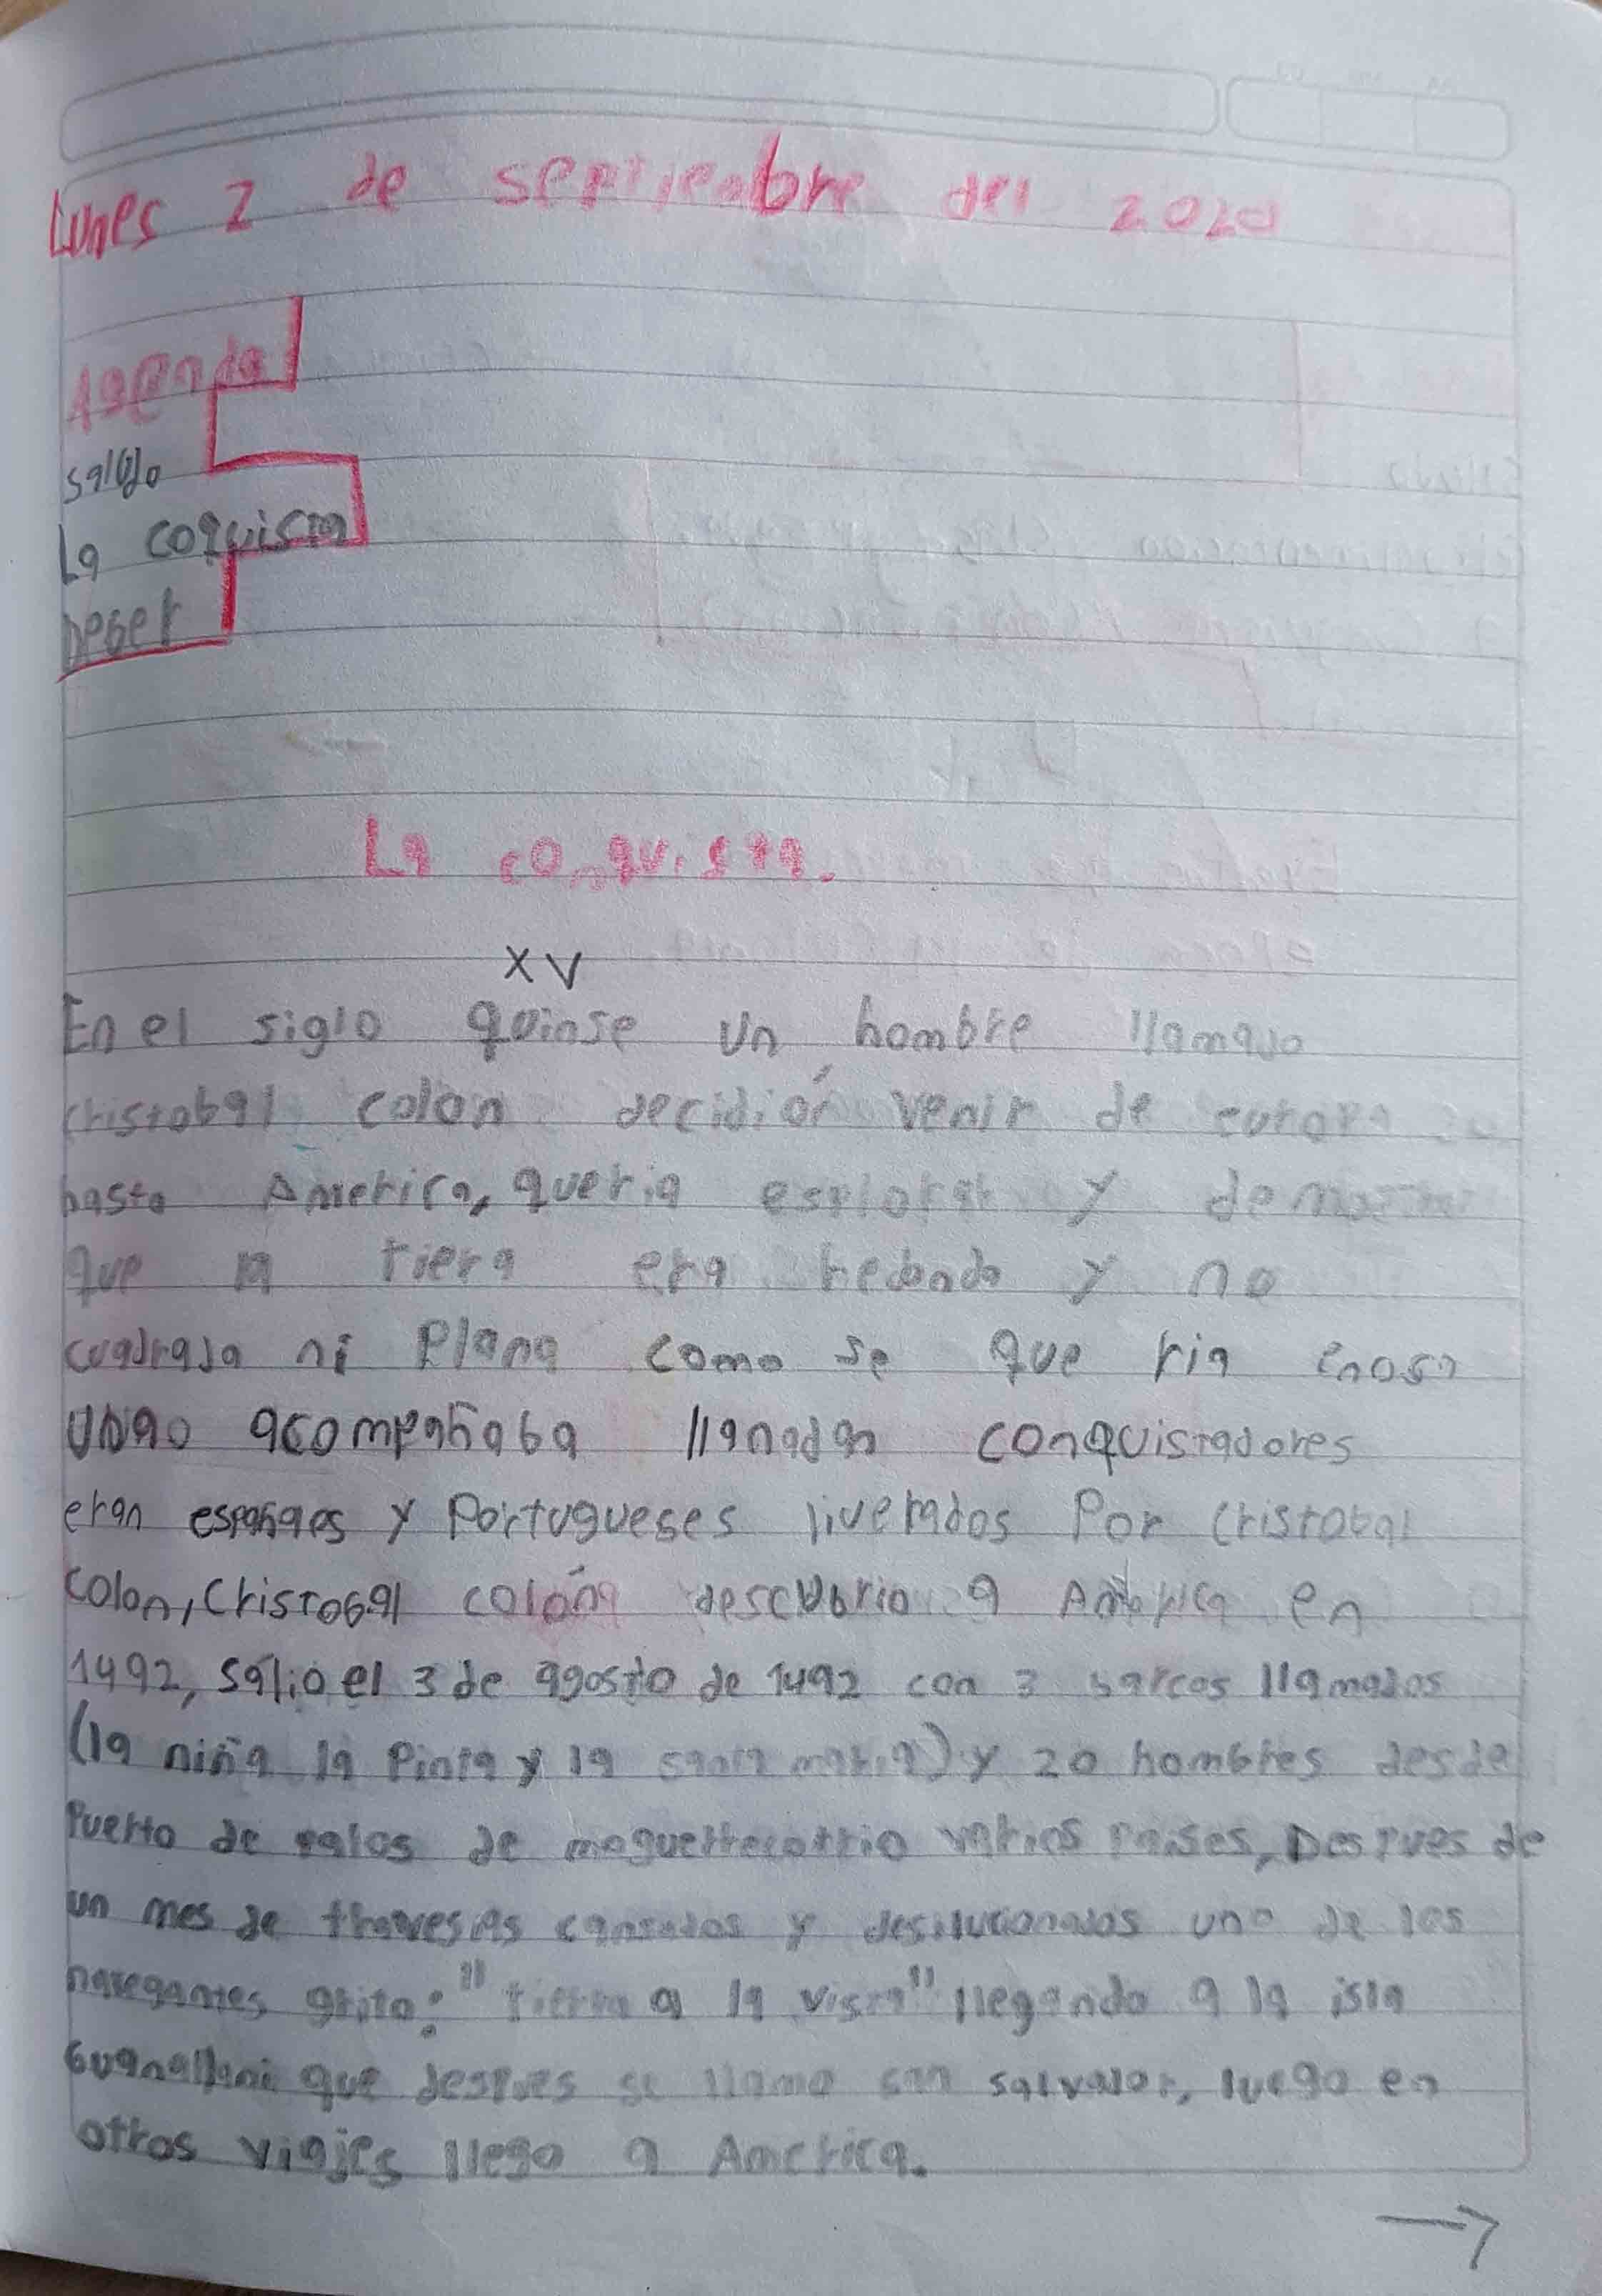 Lunes 2 de septienbre del 2020
Agenda
saludo
La coquista
Deber
La conquista.
XV
En el siglo quinse un hombre llamado
cristobal colon decidiór venir de europa
hasta America, queria esplorar y demostrar
que la tiera era redonda y no
cuadrada ni Plana como se que ria
acompañaba llanadas conquistadores
eran españaes y Portugueses liverados Por Cristobal
Colon, Cristobal colón descubrio a America en
1492, salio el 3 de agosto de 1492 con 3 barcos llamados
(la niña la Pinta y la santa maria) y 20 hombres desde
Puerto de palos de varios paises, Despues de
un mes de travesias cansados y desilucionados uno de los
navegantes grito: "tierra a la vista" llegando a la isla
que despues se llamo san salvador, luego en
otros viajes llego a America.
→